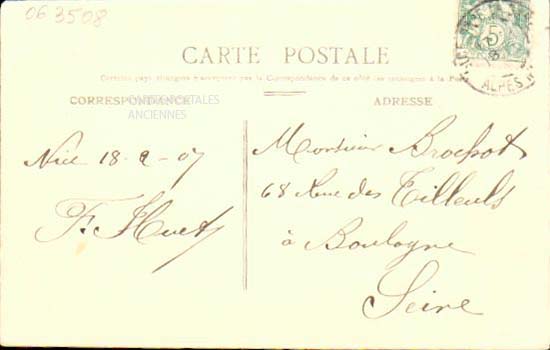 06 3508
5
ALPES
CARTE POSTALE
Certains pays étrangers n'acceptent pas la Correspondance de ce côté (se renseigner à la Poste)
CORRESPONDANCE
ADRESSE
CARTES POSTALES
ANCIENNES
Nice 18-9-07
F. Huet
Monsieur Brochot
68 Rue des Tilleuls
à Boulogne
Seine